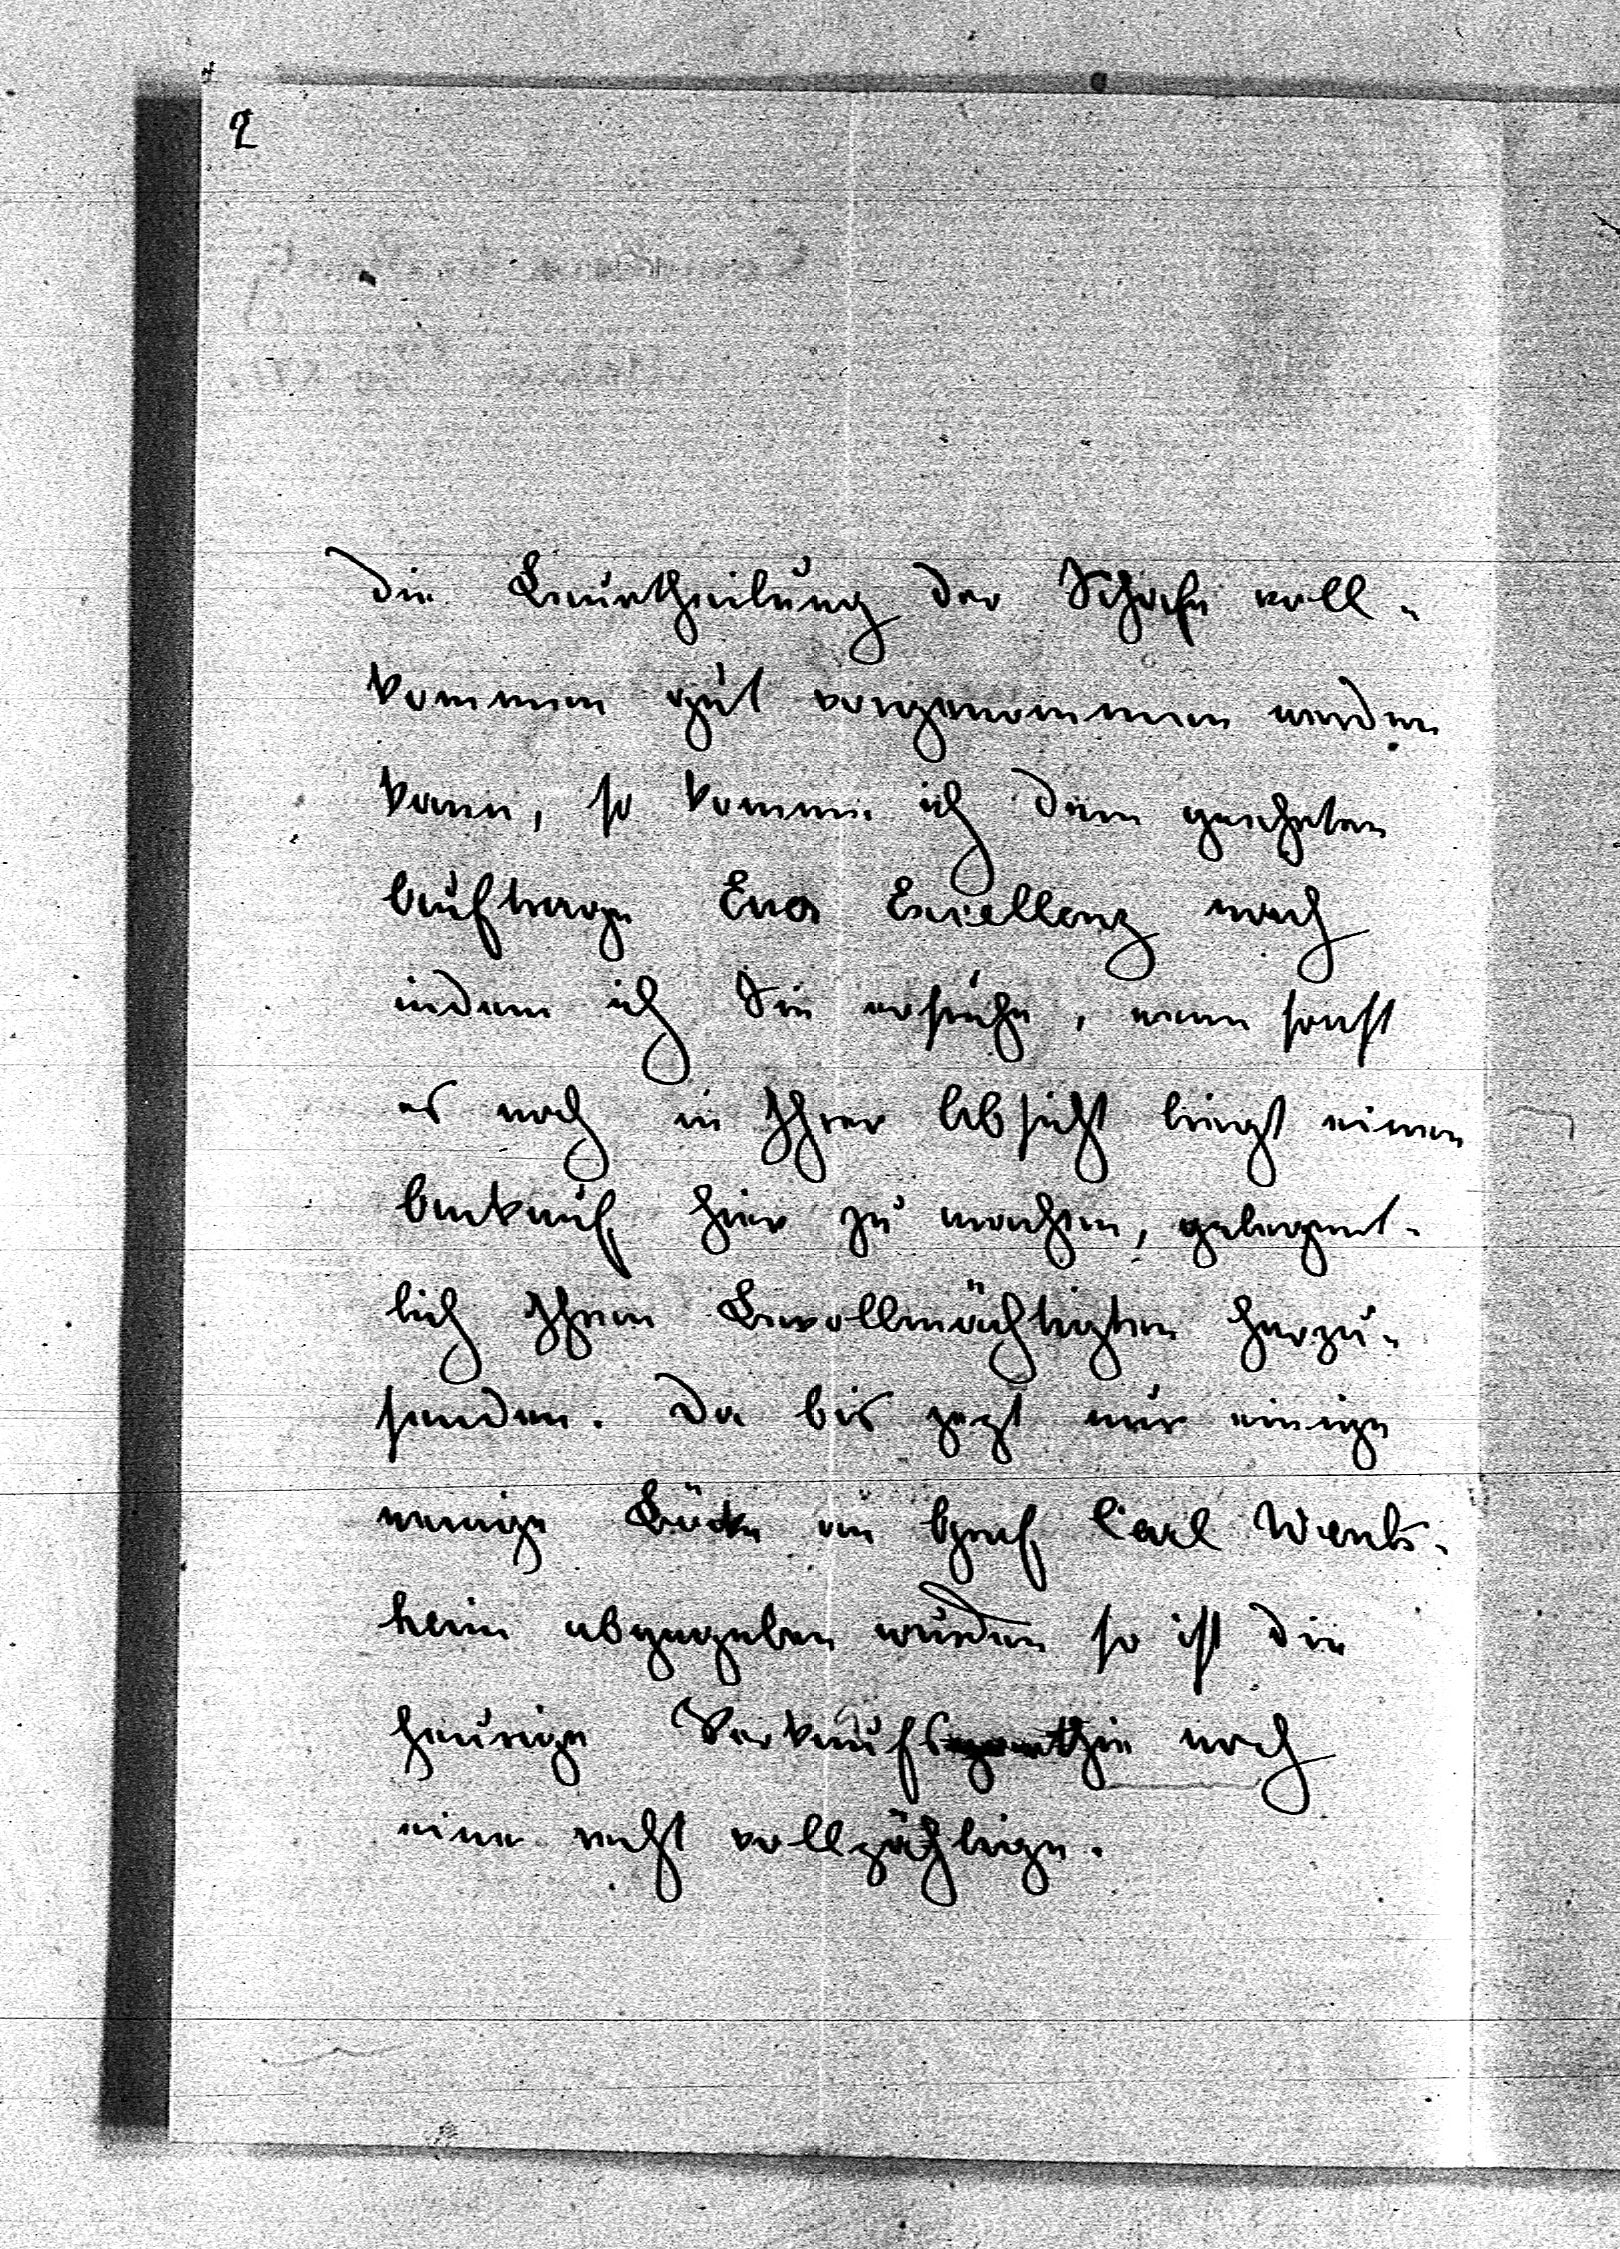 2
die Beurtheilung der Schafe voll-
kommen gut vorgenommen werden
kann, so komme ich dem geehrten
Auftrage Euer Excellenz nach
indem ich Sie ersuche, wenn sonst
es noch in Ihrer Absicht liegt einen
Ankauf hier zu machen, gelegent-
lich Ihren Bevollmächtigten herzu-
senden. Da bis jezt nur einige
wenige Böcke an Graf Carl Wenk-
heim abgegeben wurden so ist die
heurige noch
eine recht vollzählige.